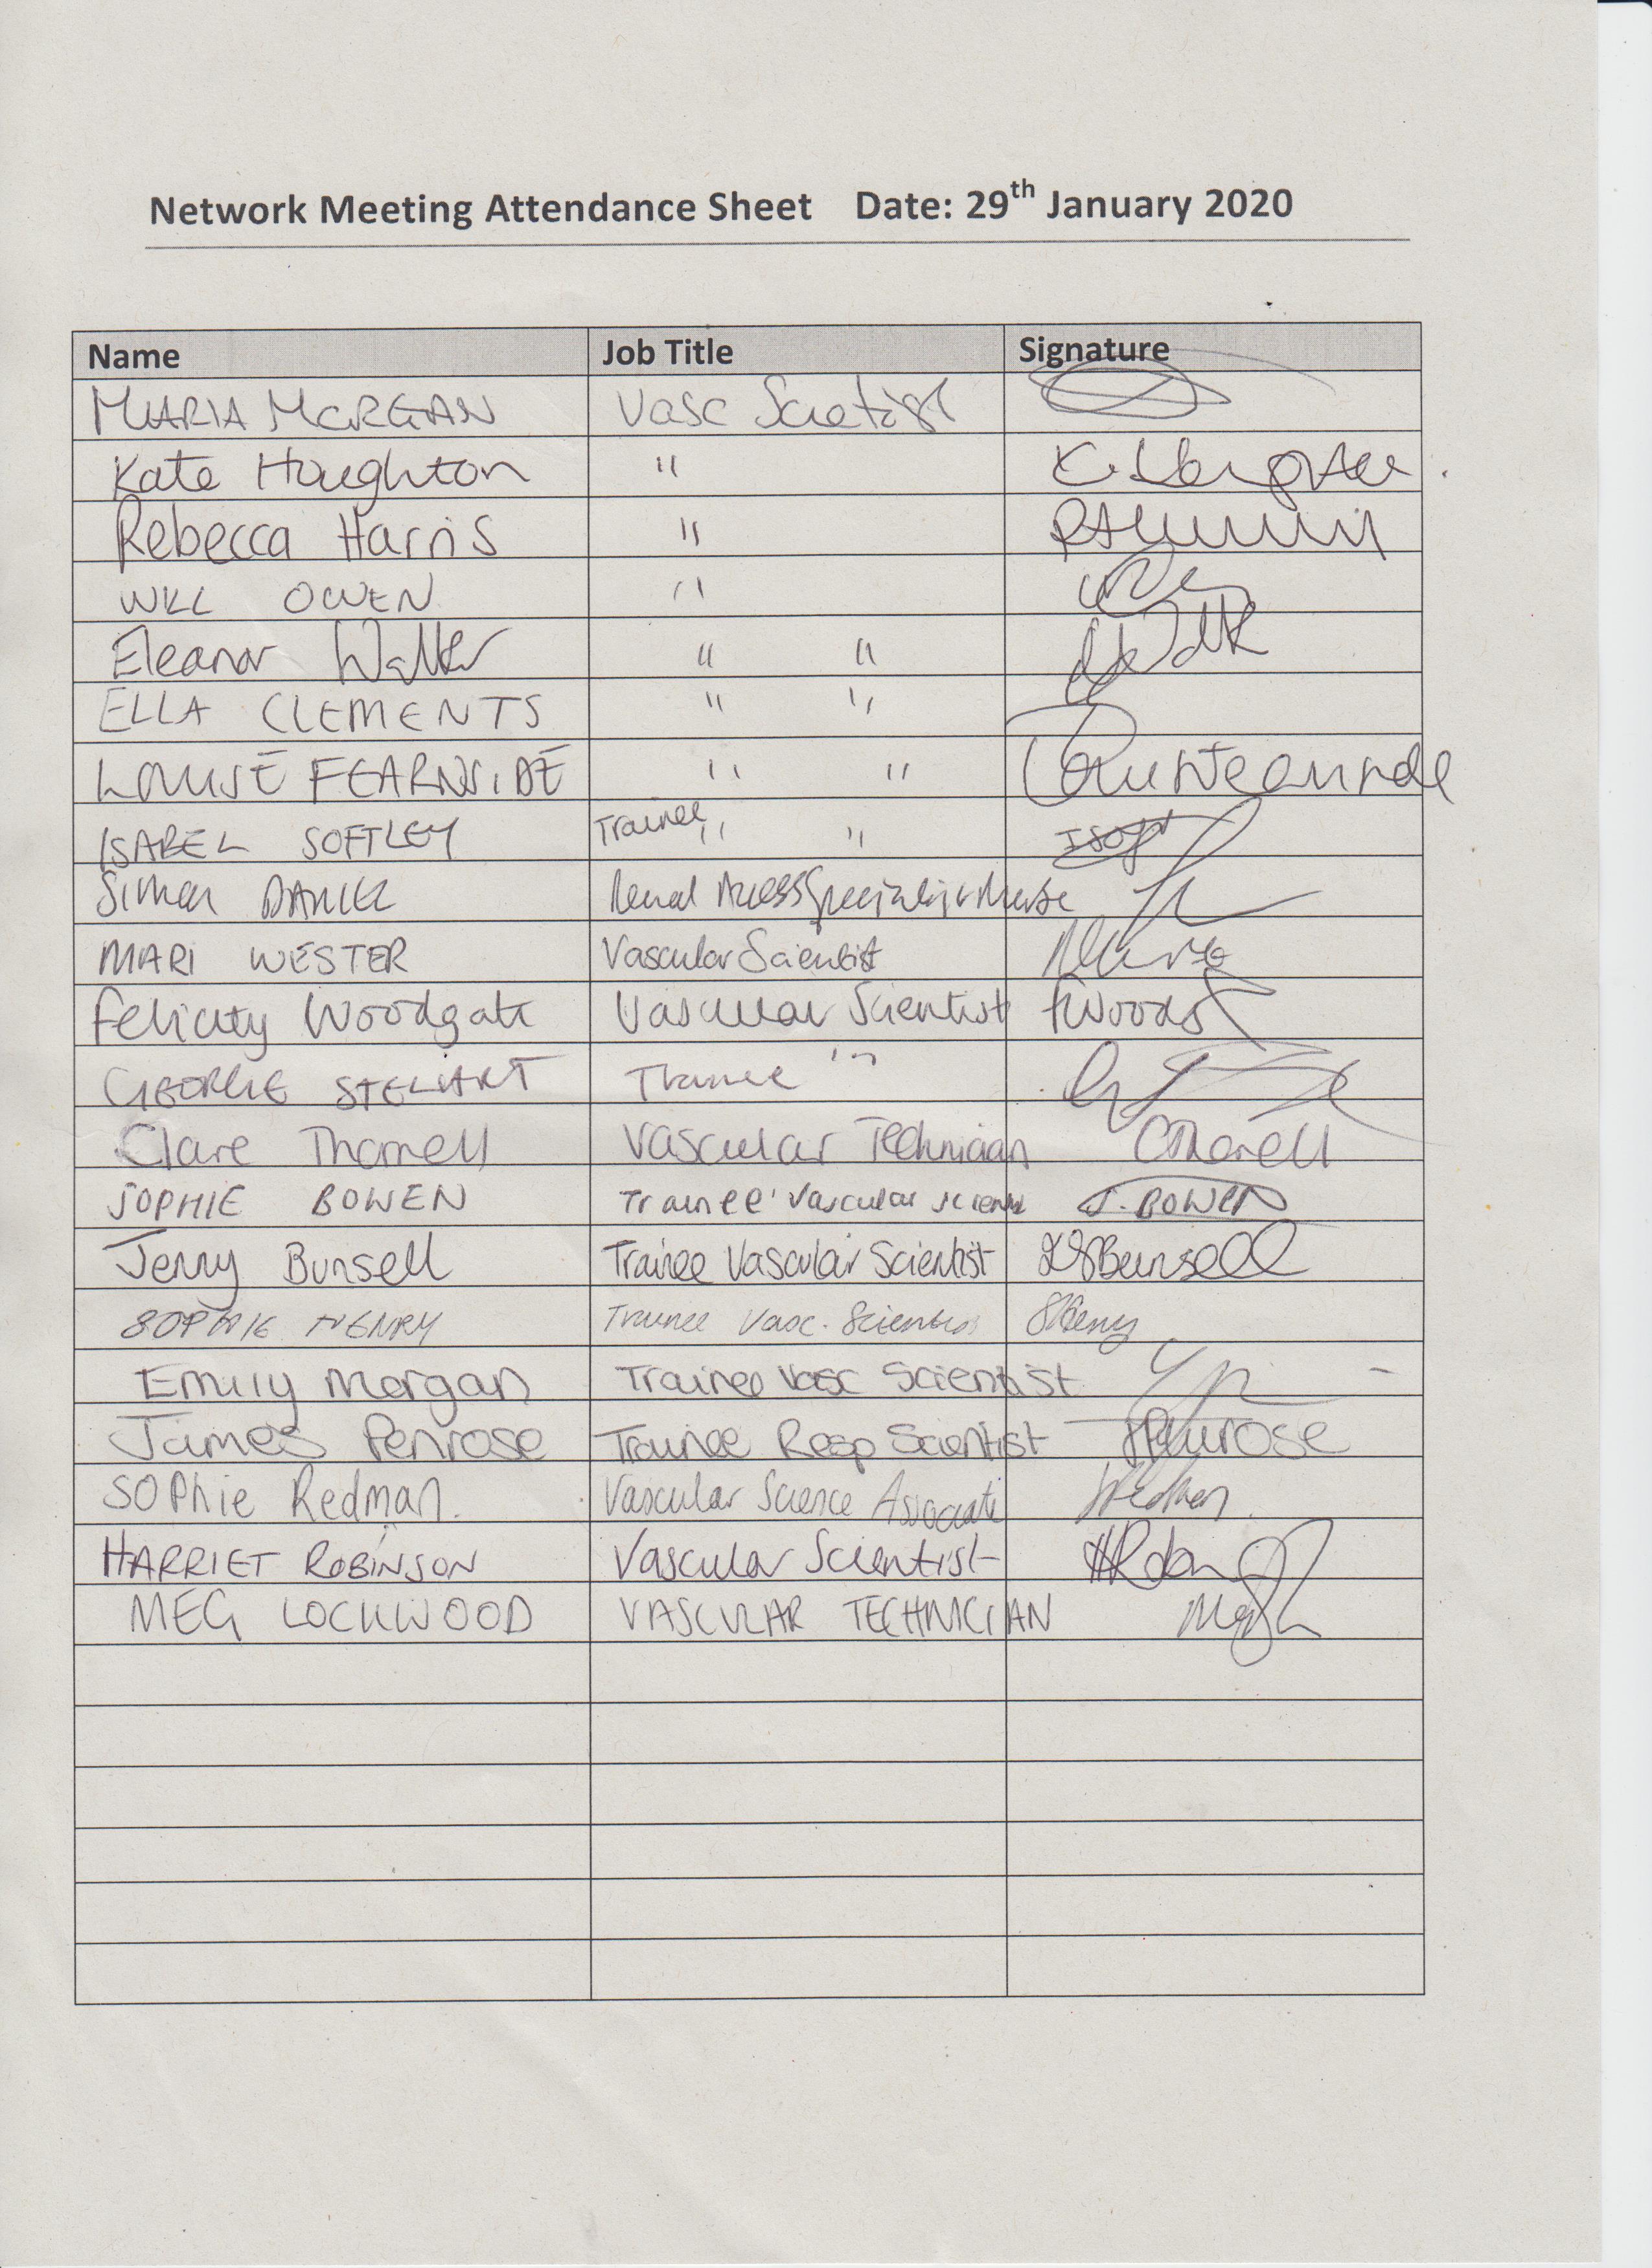 Network Meeting Attendance Sheet Date: 29th January 2020
Name Job Title Signature
MARIA MORGAN Vasc Scietist
Kate Houghton "
Rebecca Harris "
WILL OWEN "
Eleanor Walker " "
ELLA CLEMENTS " "
LOUISE FEARNSIDE " "
ISABEL SOFTLEY Trainee " "
Simon DANIEL Renal Access Specialist Nurse
MARI WESTER Vascular Scientist
Felicity Woodgate Vascular Scientist
GEORGIE STEWART Trainee "
Clare Thornell Vascular Technician
SOPHIE BOWEN Trainee Vascular Scientist S. BOWEN
Jenny Bunsell Trainee Vascular Scientist Bunsell
SOPHIE HENRY Trainee Vasc. Scientist SHenry
Emily Morgan Trainee Vasc Scientist
James Penrose Trainee Resp Scientist JPenrose
SOPhie Redman. Vascular Science Associate
HARRIET ROBINSON Vascular Scientist
MEG LOCKWOOD VASCULAR TECHNICIAN